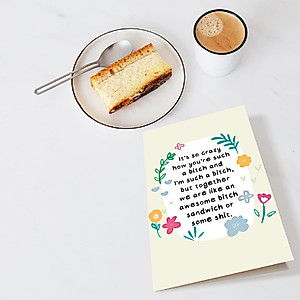 It's so crazy
how you're such
a bitch and
I'm such a bitch,
but together
we are like an
awesome bitch
sandwich or
some shit.